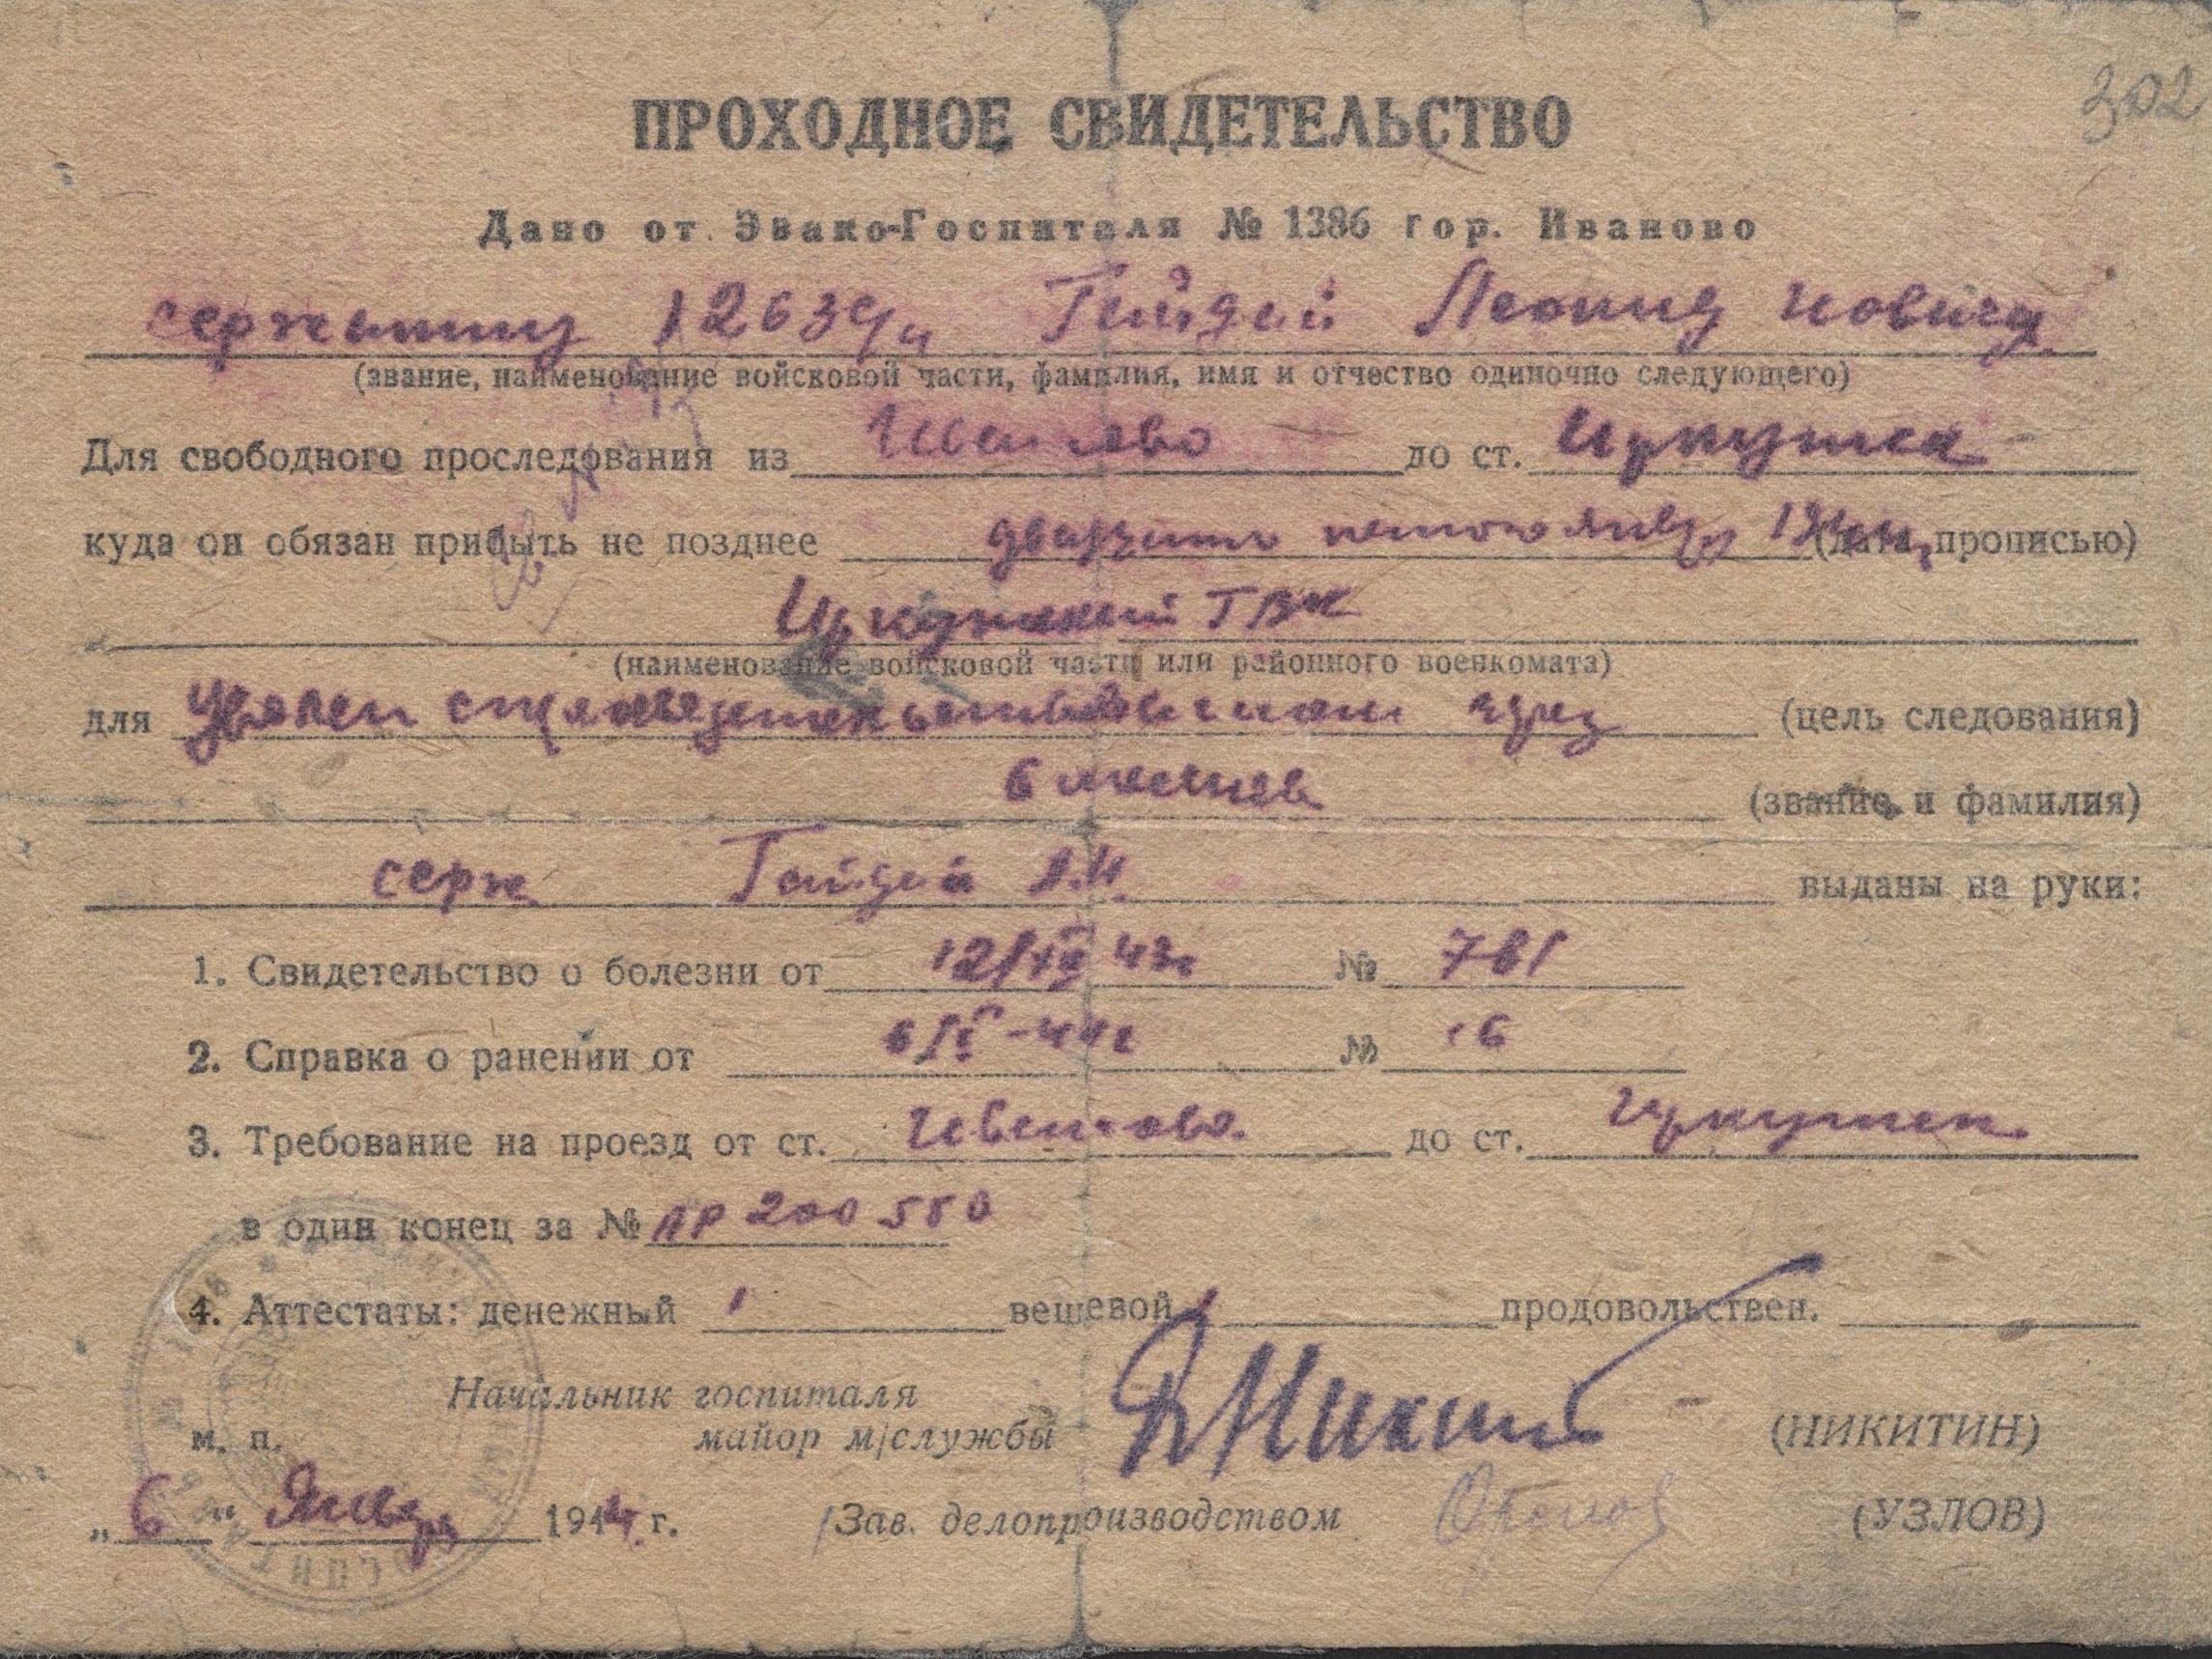 302
ПРОХОДНОЕ СВИДЕТЕЛЬСТВО
Дано от Эвако-Госпиталя № 1386 гор. Иваново
сержанту 1263 Гайдай Леонид Иович
(звание, наименование войсковой части, фамилия, имя и отчество одиночно следующего)
Для свободного проследования из Иваново до ст. Иркутск
куда он обязан прибыть не позднее двадцать пятого января 1944 (дата прописью)
Иркутский ГВК
(наименование войсковой части или районного военкомата)
для Уволен с переосвидетельствованием через (цель следования)
6 месяцев (звание и фамилия)
серж Гайдай Л.И. выданы на руки:
1. Свидетельство о болезни от 12/XII 43г № 761
2. Справка о ранении от 6/I-44г № 16
3. Требование на проезд от ст. Иваново до ст. Иркутск
в один конец за № АР 200550
4. Аттестаты: денежный 1 вещевой 1 продовольствен.
Начальник госпиталя
м. п. майор м/службы (НИКИТИН)
„6" Января 1944 г. Зав. делопроизводством (УЗЛОВ)